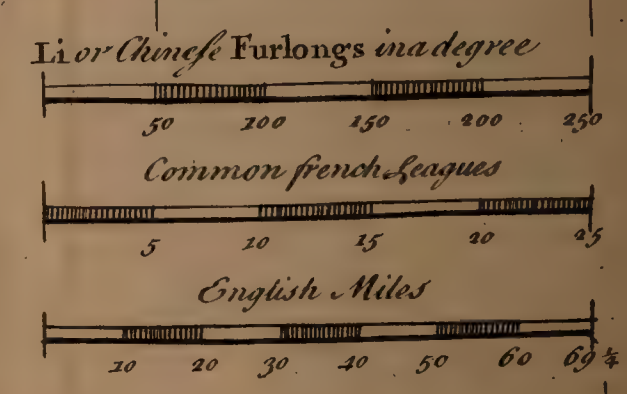 Li or Chinese Furlongs in a degree
50 100 150 200 250
Common french Leagues
5 10 15 20 25
English Miles
10 20 30 40 50 60 69 1/4